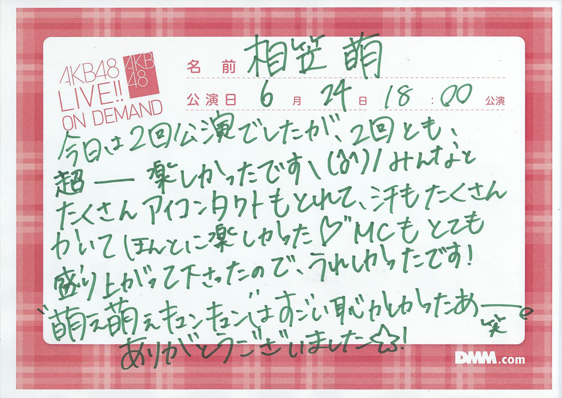 AKB48
LIVE!!
ON DEMAND
AKB
48
名前 相笠 萌
公演日 6月24日 18:00 公演
今日は2回公演でしたが、2回とも、
超ー楽しかったです\(^^)/みんなと
たくさんアイコンタクトもとれて、汗もたくさん
かいてほんとに楽しかった♡MCもとても
盛り上がって下さったので、うれしかったです!
"萌え萌えキュンキュン"はすごい恥ずかしかったあー。笑
ありがとうございました☆!
DMM.com